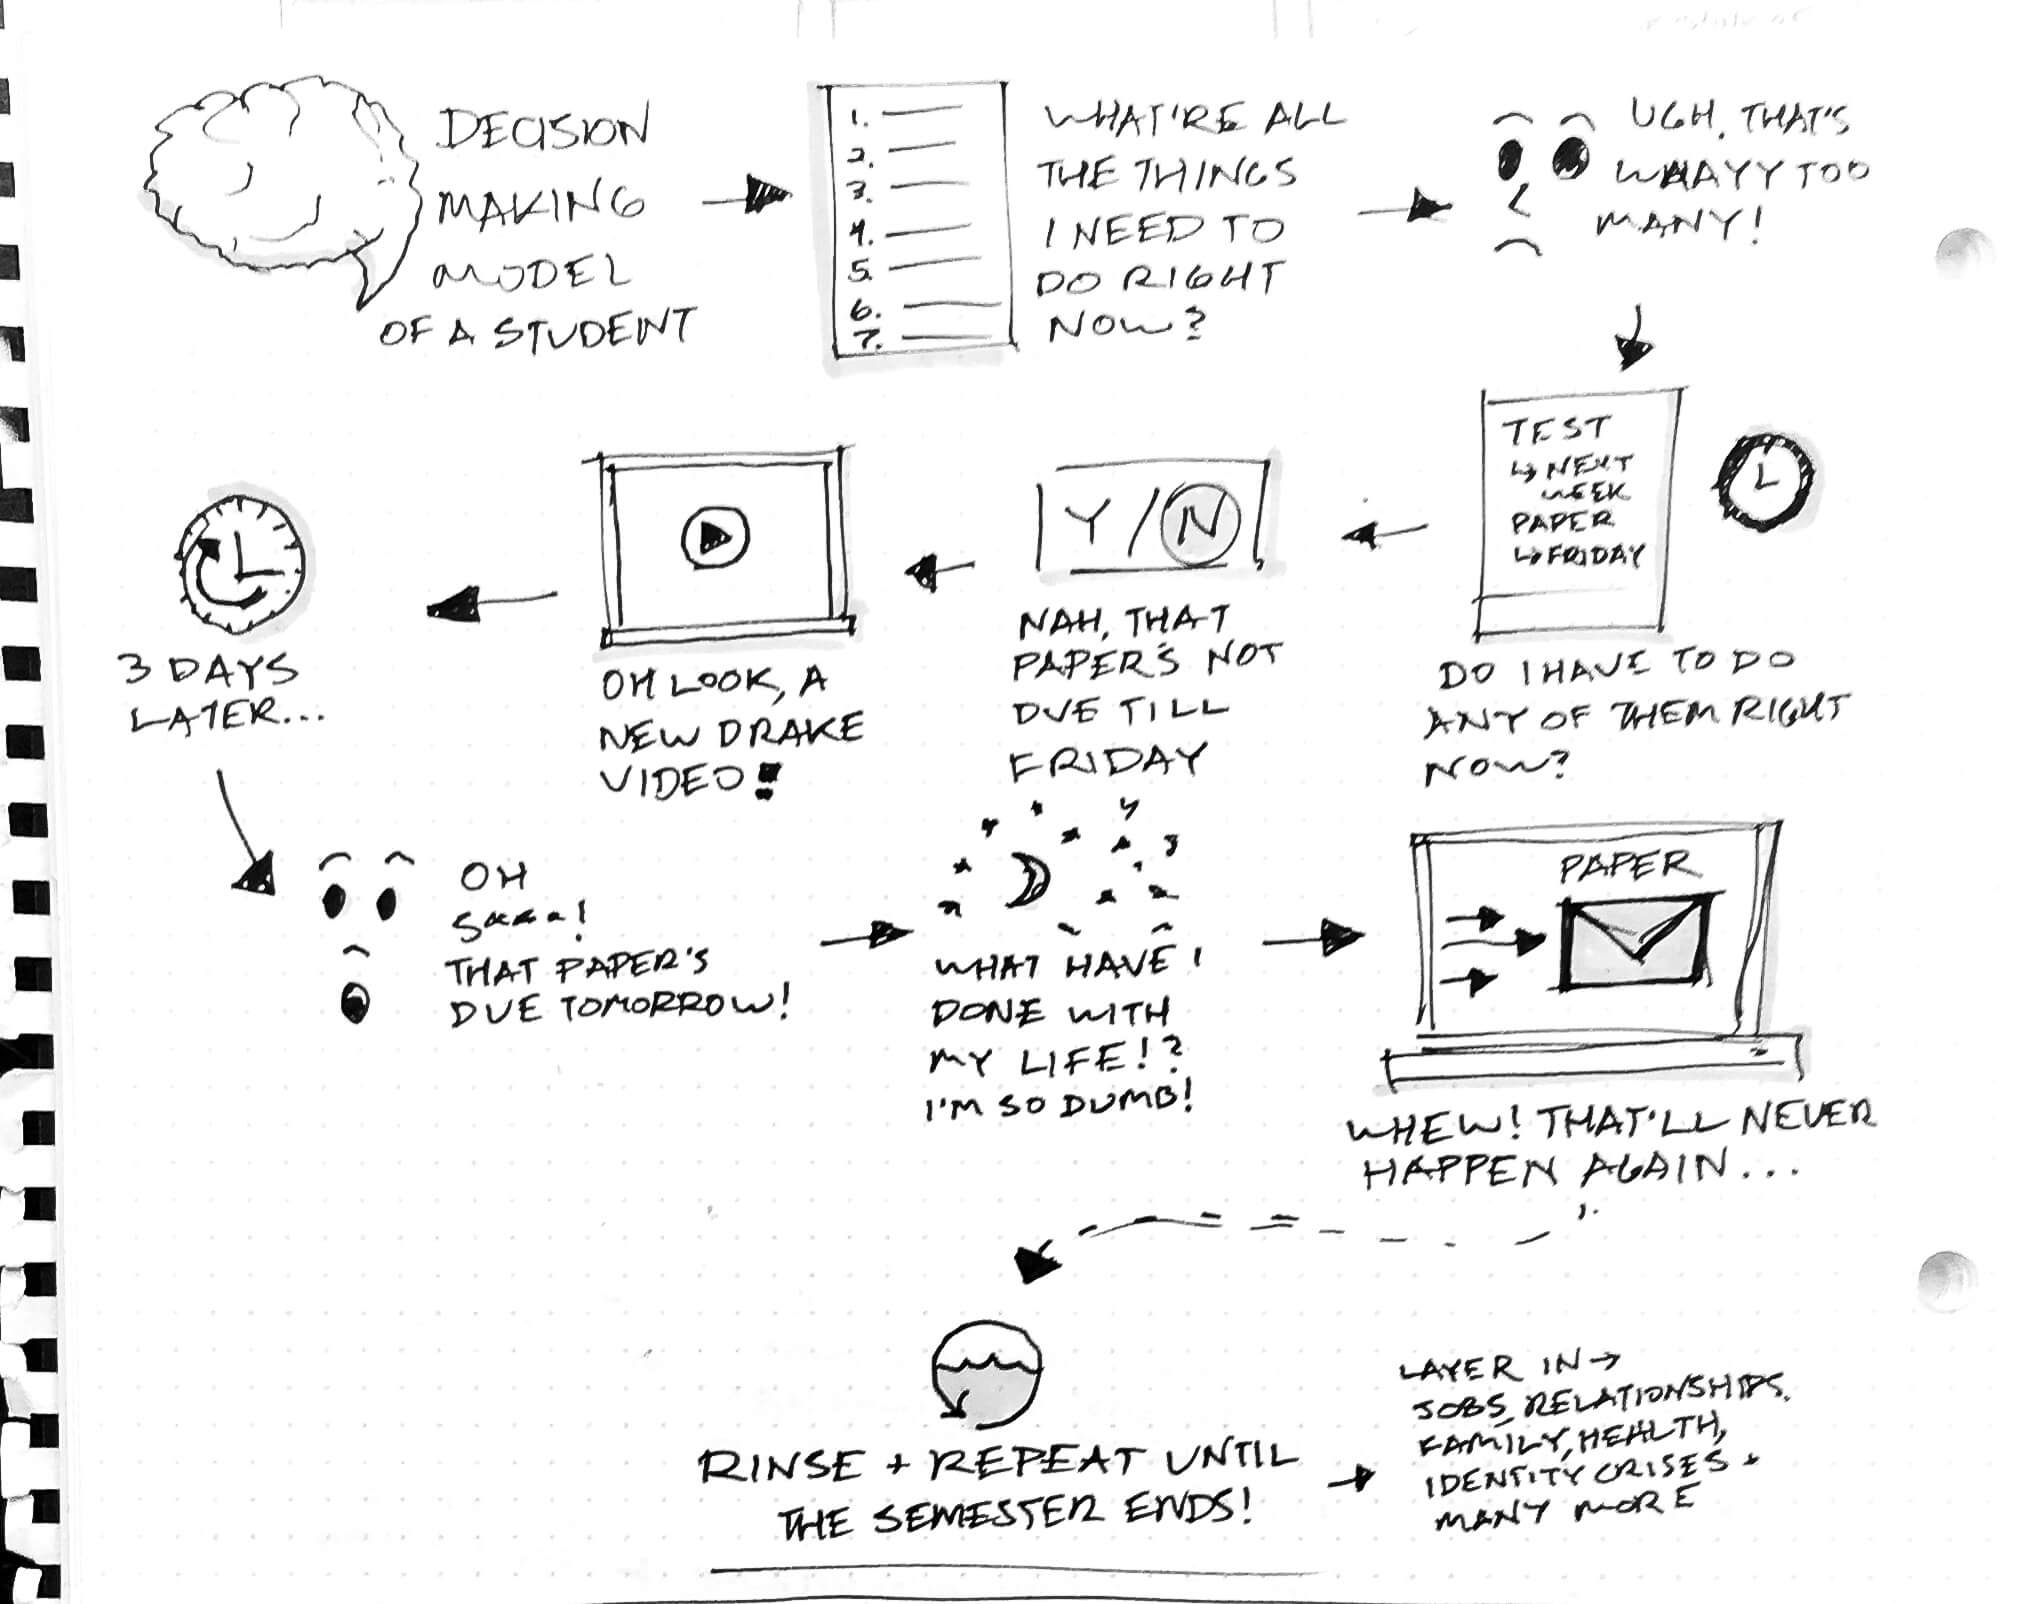 DECISION
MAKING
MODEL
OF A STUDENT
1.
2.
3.
4.
5.
6.
7.
WHAT'RE ALL
THE THINGS
I NEED TO
DO RIGHT
NOW?
UGH, THAT'S
WHAYY TOO
MANY!
TEST
↳ NEXT
WEEK
PAPER
↳ FRIDAY
DO I HAVE TO DO
ANY OF THEM RIGHT
NOW?
Y/N
NAH, THAT
PAPER'S NOT
DUE TILL
FRIDAY
OH LOOK, A
NEW DRAKE
VIDEO!!
3 DAYS
LATER...
OH
THAT PAPER'S
DUE TOMORROW!
WHAT HAVE I
DONE WITH
MY LIFE!?
I'M SO DUMB!
PAPER
WHEW! THAT'LL NEVER
HAPPEN AGAIN...
RINSE + REPEAT UNTIL
THE SEMESTER ENDS!
LAYER IN →
JOBS, RELATIONSHIPS,
FAMILY, HEALTH,
IDENTITY CRISES +
MANY MORE